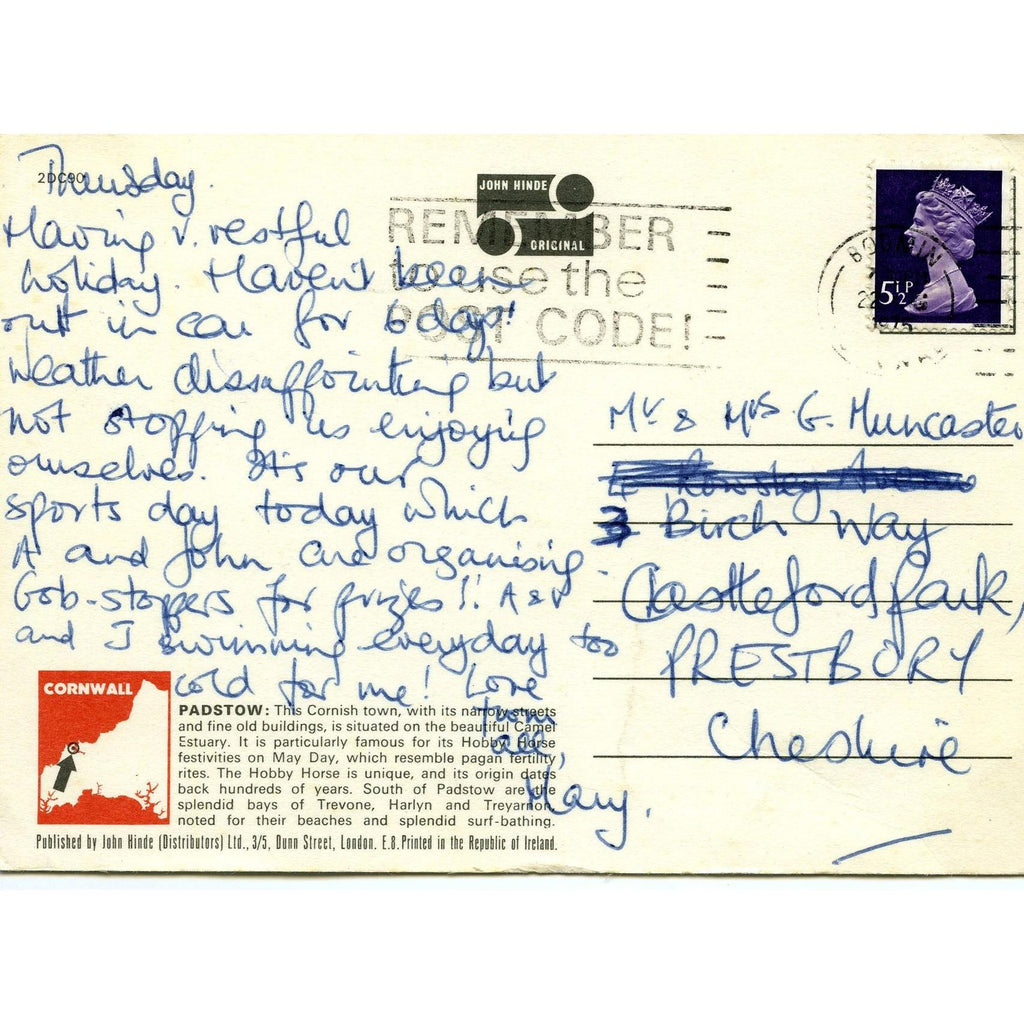 2DC90
Thursday.
Having v. restful
holiday. Haven't been
out in car for 6 days!
Weather dissappointing but
not stopping us enjoying
ourselves. It's our
sports day today which
A and John are organising.
Gob-stoppers for prizes!! A & P
and I swimming everyday too
cold for me! Love
from
all,
Mary.
JOHN HINDE
ORIGINAL
REMEMBER
to use the
POST CODE!
BODMIN
1975
5½P
Mr & Mrs G. Muncaster
3 Birch Way
Castleford Park,
PRESTBURY
Cheshire
CORNWALL
PADSTOW: This Cornish town, with its narrow streets
and fine old buildings, is situated on the beautiful Camel
Estuary. It is particularly famous for its Hobby Horse
festivities on May Day, which resemble pagan fertility
rites. The Hobby Horse is unique, and its origin dates
back hundreds of years. South of Padstow are the
splendid bays of Trevone, Harlyn and Treyarnon,
noted for their beaches and splendid surf-bathing.
Published by John Hinde (Distributors) Ltd., 3/5, Dunn Street, London. E.8. Printed in the Republic of Ireland.